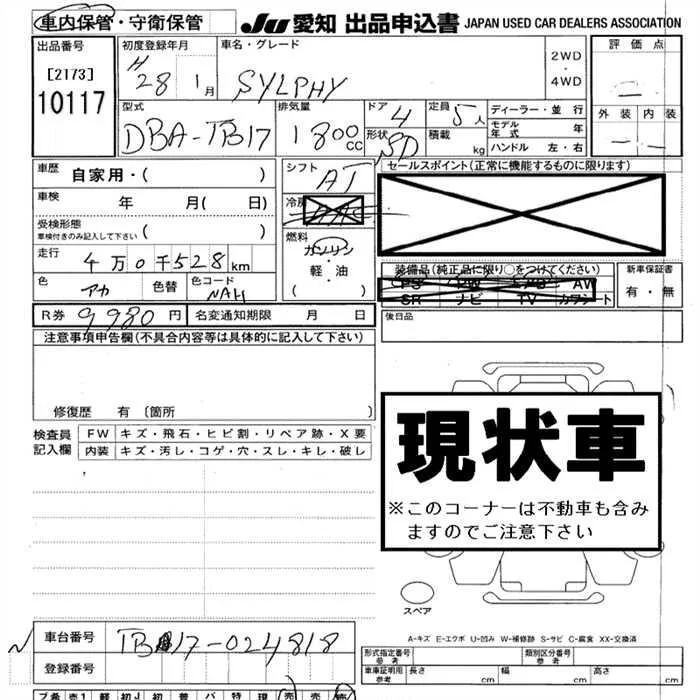 車内保管・守衛保管 JU 愛知 出品申込書 JAPAN USED CAR DEALERS ASSOCIATION
出品番号 初度登録年月 車名・グレード 2WD・4WD 評価点
[2173] H 28 1月 SYLPHY
10117 型式 排気量 ドア 定員 ディーラー・並行 外装 内装
DBA-TB17 1800cc 4 形状 SD 5人 積載 kg モデル年式 年
ハンドル 左・右
車歴 自家用・( ) シフト AT セールスポイント(正常に機能するものに限ります)
車検 年 月( 日)
受検形態 車検付きのみ記入して下さい ( )
燃料 ガソリン・軽・油・( )
走行 4万0千528km
色 アカ 色替 色コード NAH
装備品(純正品に限り○をつけてください) 新車保証書
PS PW AW 有・無
SR ナビ TV
R券 9980円 名変通知期限 月 日 後日品
注意事項申告欄(不具合内容等は具体的に記入して下さい)
修復歴 有 〔箇所 〕
検査員記入欄 FW キズ・飛石・ヒビ割・リペア跡・X要
内装 キズ・汚レ・コゲ・穴・スレ・キレ・破レ
現状車
※このコーナーは不動車も含み
ますのでご注意下さい
スペア
A-キズ E-エクボ U-凹み W-補修跡 S-サビ C-腐食 XX-交換済
車台番号 TB17-024818
登録番号
形式指定番号 参考 類別区分番号 参考
車庫証明用 参考 長さ cm 幅 cm 高さ cm